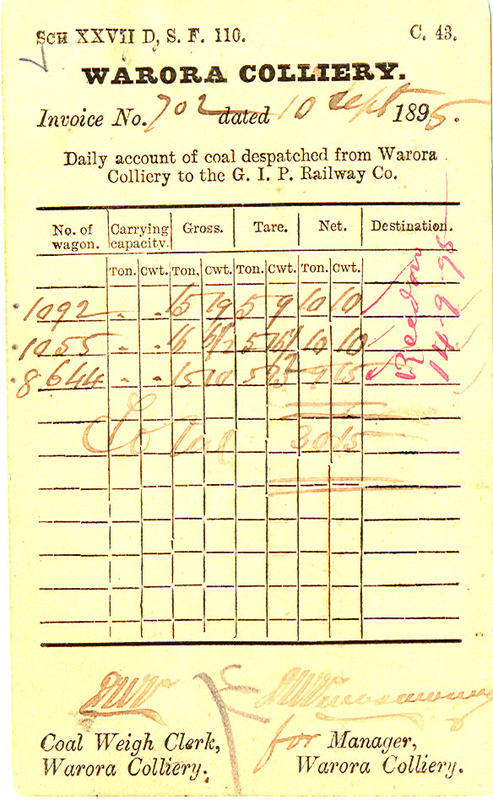 SCH XXVII D, S. F. 110. C. 43.
WARORA COLLIERY.
Invoice No. 702 dated 10 Sept 1895.
Daily account of coal despatched from Warora
Colliery to the G. I. P. Railway Co.
No. of wagon. Carrying capacity. Gross. Tare. Net. Destination.
Ton. Cwt. Ton. Cwt. Ton. Cwt. Ton. Cwt.
1092 " " 15 19 5 9 10 10
1055 " " 16 5 10 10
8644 " " 15 10 5 9 15
Total 30 15
14-9-95
Coal Weigh Clerk, for Manager,
Warora Colliery. Warora Colliery.